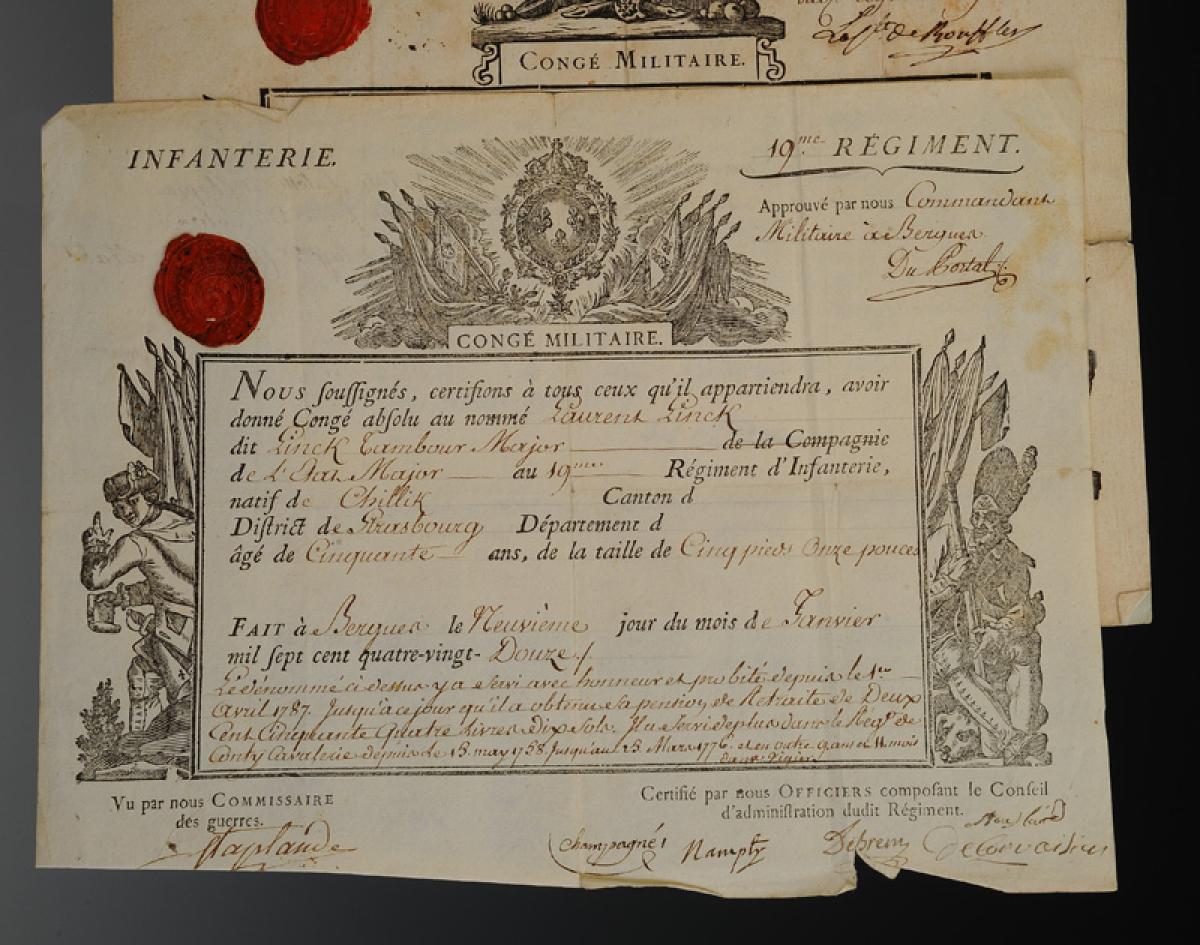 CONGÉ MILITAIRE.
INFANTERIE.
19.me RÉGIMENT.
Approuvé par nous Commandant
Militaire à Bergues
Du Portal
CONGÉ MILITAIRE.
NOUS souſſignés, certifions à tous ceux qu'il appartiendra, avoir
donné Congé abſolu au nommé Laurent Linck
dit Linck Tambour Major de la Compagnie
de L'Etat Major au 19me Régiment d'Infanterie,
natif de Chillik Canton d
Diſtrict de Strasbourg Département d
âgé de Cinquante ans, de la taille de Cinq pieds Onze pouces
FAIT à Bergues le Neuvième jour du mois de Janvier
mil ſept cent quatre-vingt- Douze
Le dénommé ci dessus y a servi avec honneur et probité depuis le 1er
Avril 1787. Jusqu'a ce jour qu'il a obtenu sa pension de Retraite de Deux
Cent Cinquante Quatre Livres dix Sols. Il a Servi de plus dans le Regt de
Conty Cavalerie depuis le 13. may 1758 Jusqu'au 23 Mars 1776. et en outre 9 ans et 11 mois
Vu par nous COMMISSAIRE
des guerres.
Certifié par nous OFFICIERS compoſant le Conſeil
d'adminiſtration dudit Régiment.
Champagné